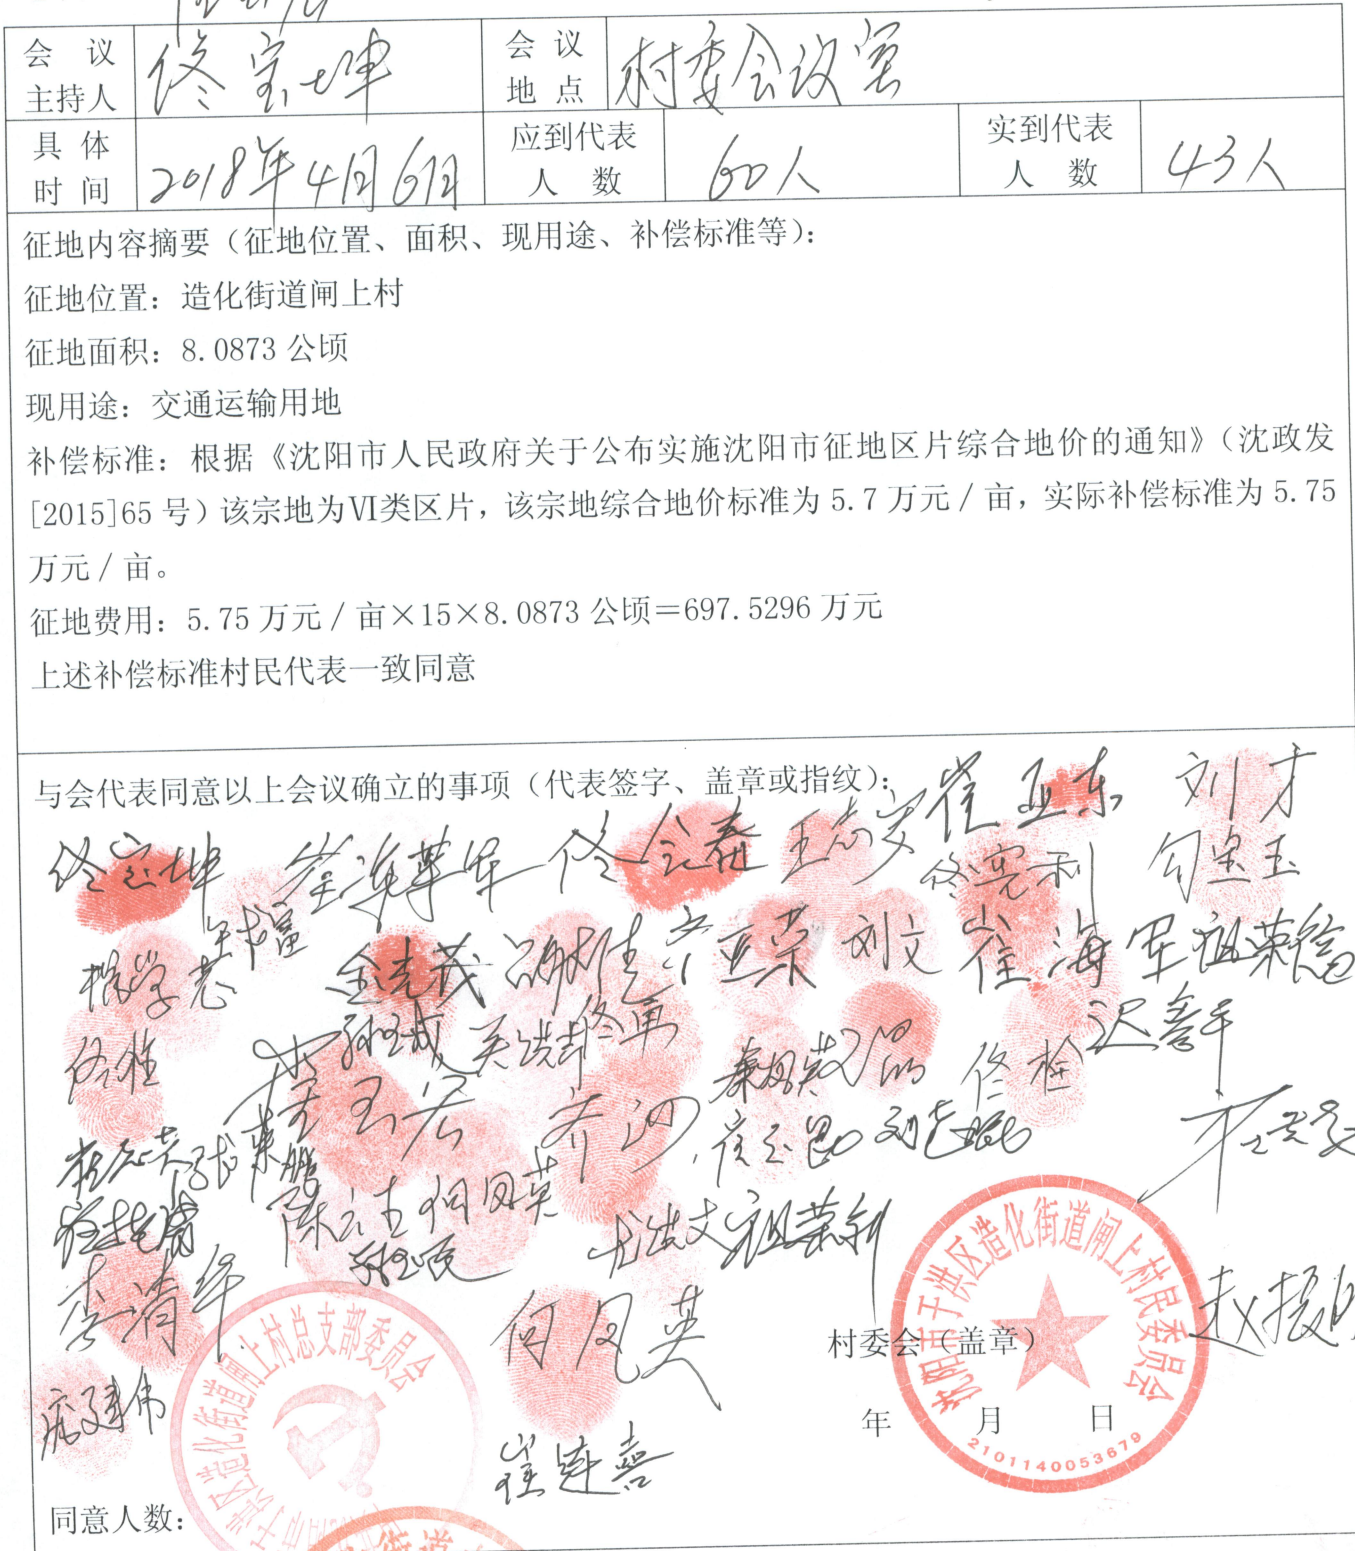 会议主持人 佟宝坤 会议地点 村委会议室
具体时间 2018年4月6日 应到代表人数 60人 实到代表人数 43人
征地内容摘要（征地位置、面积、现用途、补偿标准等）：
征地位置：造化街道闸上村
征地面积：8.0873 公顷
现用途：交通运输用地
补偿标准：根据《沈阳市人民政府关于公布实施沈阳市征地区片综合地价的通知》（沈政发
[2015]65 号）该宗地为Ⅵ类区片，该宗地综合地价标准为 5.7 万元／亩，实际补偿标准为 5.75
万元／亩。
征地费用：5.75 万元／亩×15×8.0873 公顷＝697.5296 万元
上述补偿标准村民代表一致同意
与会代表同意以上会议确立的事项（代表签字、盖章或指纹）：
崔亚东 刘才
佟宝坤 王志安 佟宪利
金志茂 刘文 崔海军 祖荣信
佟维 佟栓 迟善平
李玉宏 乔泗
尤洪文 祖荣利
李清华 何凤英
崔连喜
沈阳市于洪区造化街道闸上村民委员会
2101140053679
村委会（盖章）
年 月 日
沈阳市于洪区造化街道闸上村总支部委员会
同意人数：